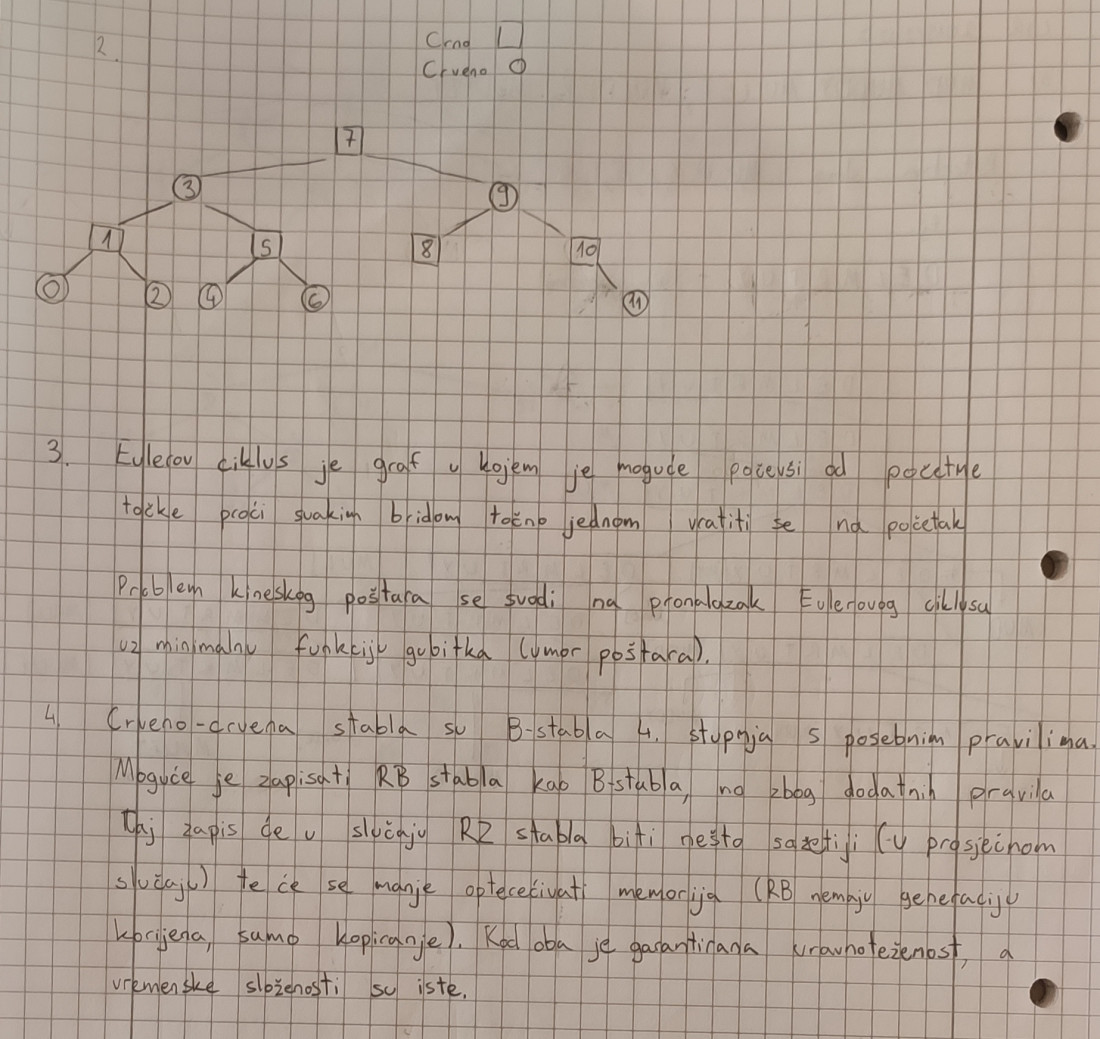 2.
Crno
Crveno
7
3 9
1 5 8 10
0 2 4 6 11
3. Eulerov ciklus je graf u kojem je moguće počevši od početne
točke proći svakim bridom točno jednom i vratiti se na početak
Problem kineskog poštara se svodi na pronalazak Eulerovog ciklusa
uz minimalnu funkciju gubitka (umor poštara).
4. Crveno-crvena stabla su B-stabla 4. stupnja s posebnim pravilima.
Moguće je zapisati RB stabla kao B-stabla, no zbog dodatnih pravila
Taj zapis će u slučaju RZ stabla biti nešto sažetiji (u prosječnom
slučaju) te će se manje opterećivati memorija (RB nemaju generaciju
korijena, samo kopiranje). Kod oba je garantirana uravnoteženost, a
vremenske složenosti su iste.